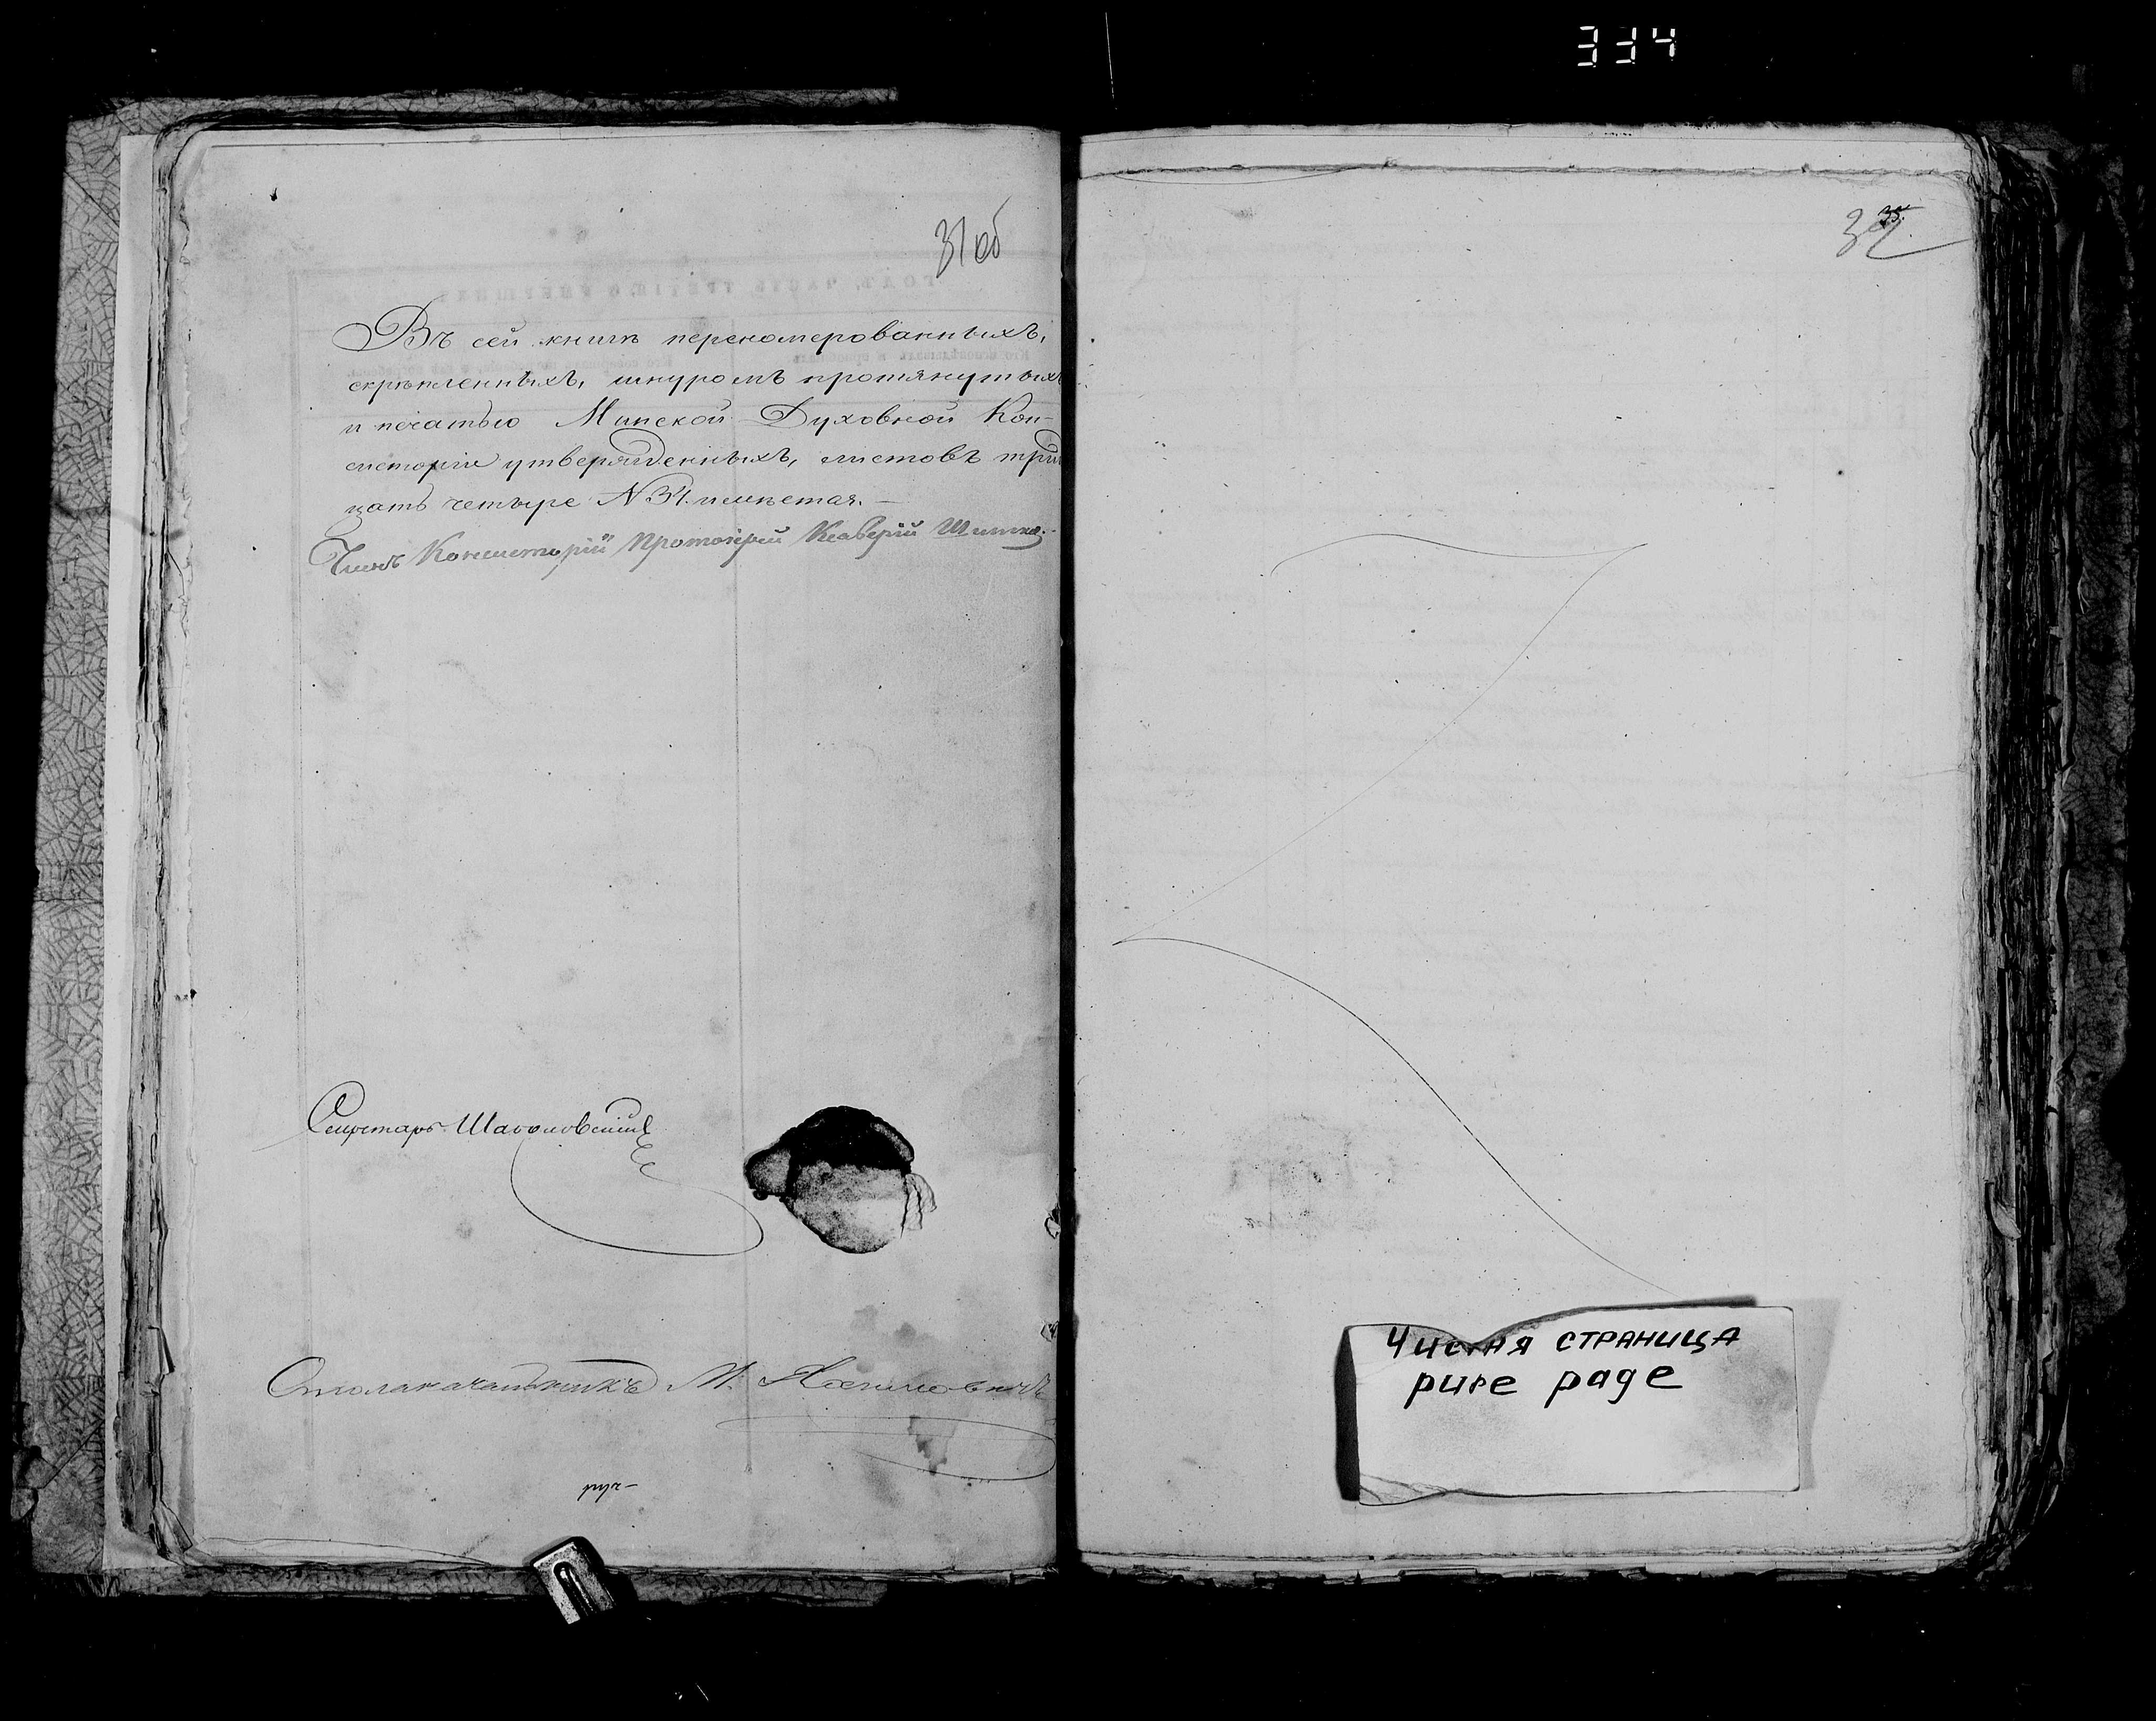 334
31 об
Въ сей книгѣ перенумерованныхъ,
скрѣпленныхъ, шнуромъ протянутыхъ
и печатью Минской Духовной Кон-
систоріи утвержденныхъ, листовъ трид
цать четыре N 34. листа.
Членъ Консисторіи Протоіерей Ксаверій
Секретарь
Столоначальникъ М.
руч-
32
35.
Чистая страница
pure page